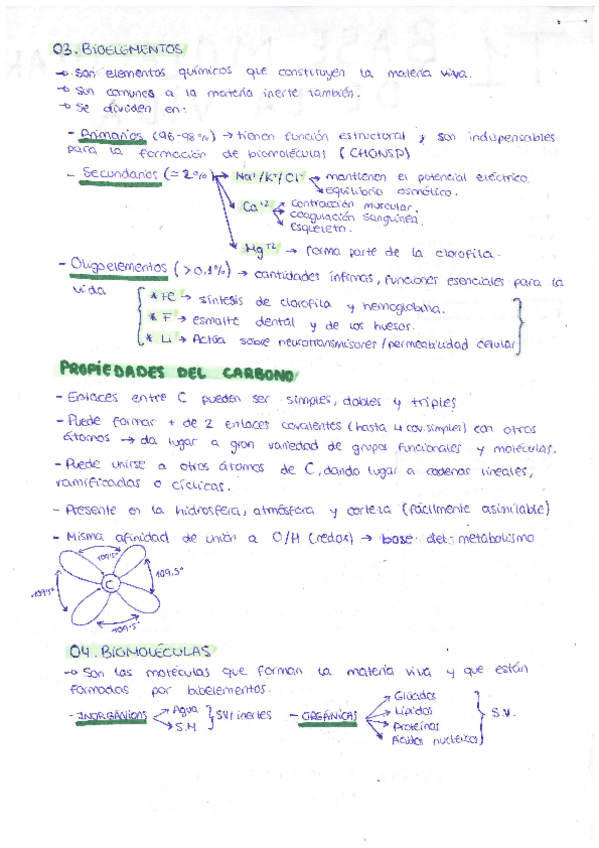 03. BIOELEMENTOS
→ Son elementos químicos que constituyen la materia viva.
→ Son comunes a la materia inerte también.
→ Se dividen en:
- Primarios (96-98%) → tienen función estructural y son indispensables
para la formación de biomoléculas (CHONSP)
- Secundarios (≃ 2%) → Na⁺/K⁺/Cl⁻ → mantienen el potencial eléctrico.
→ equilibrio osmótico.
Ca⁺² → contracción muscular.
→ coagulación sanguínea.
→ Esqueleto.
Mg⁺² → forma parte de la clorofila.
- Oligoelementos (>0,1%) → cantidades ínfimas, funciones esenciales para la
vida
* Fe → síntesis de clorofila y hemoglobina.
* F → esmalte dental y de los huesos.
* Li → Actúa sobre neurotransmisores/permeabilidad celular
PROPIEDADES DEL CARBONO
- Enlaces entre C pueden ser simples, dobles y triples
- Puede formar + de 2 enlaces covalentes (hasta 4 cov. simples) con otros
átomos → da lugar a gran variedad de grupos funcionales y moléculas.
- Puede unirse a otros átomos de C, dando lugar a cadenas lineales,
ramificadas o cíclicas.
- Presente en la hidrosfera, atmósfera y corteza (fácilmente asimilable)
- Misma afinidad de unión a O/H (redox) → base del metabolismo
109.5°
109.5°
C
109.5°
109.5°
04. BIOMOLÉCULAS
→ Son las moléculas que forman la materia viva y que están
formadas por bioelementos.
- INORGÁNICAS → Agua
→ S.M
} SV/inertes
- ORGÁNICAS → Glúcidos
→ Lípidos
→ Proteínas
→ Ácidos nucleicos
} S.V.